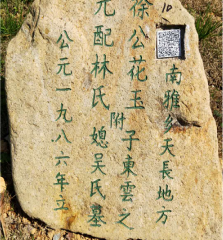 10
南雅乡天長地方
徐公花玉
元配林氏
附
子東雲之
媳吳氏墓
公元一九八六年立